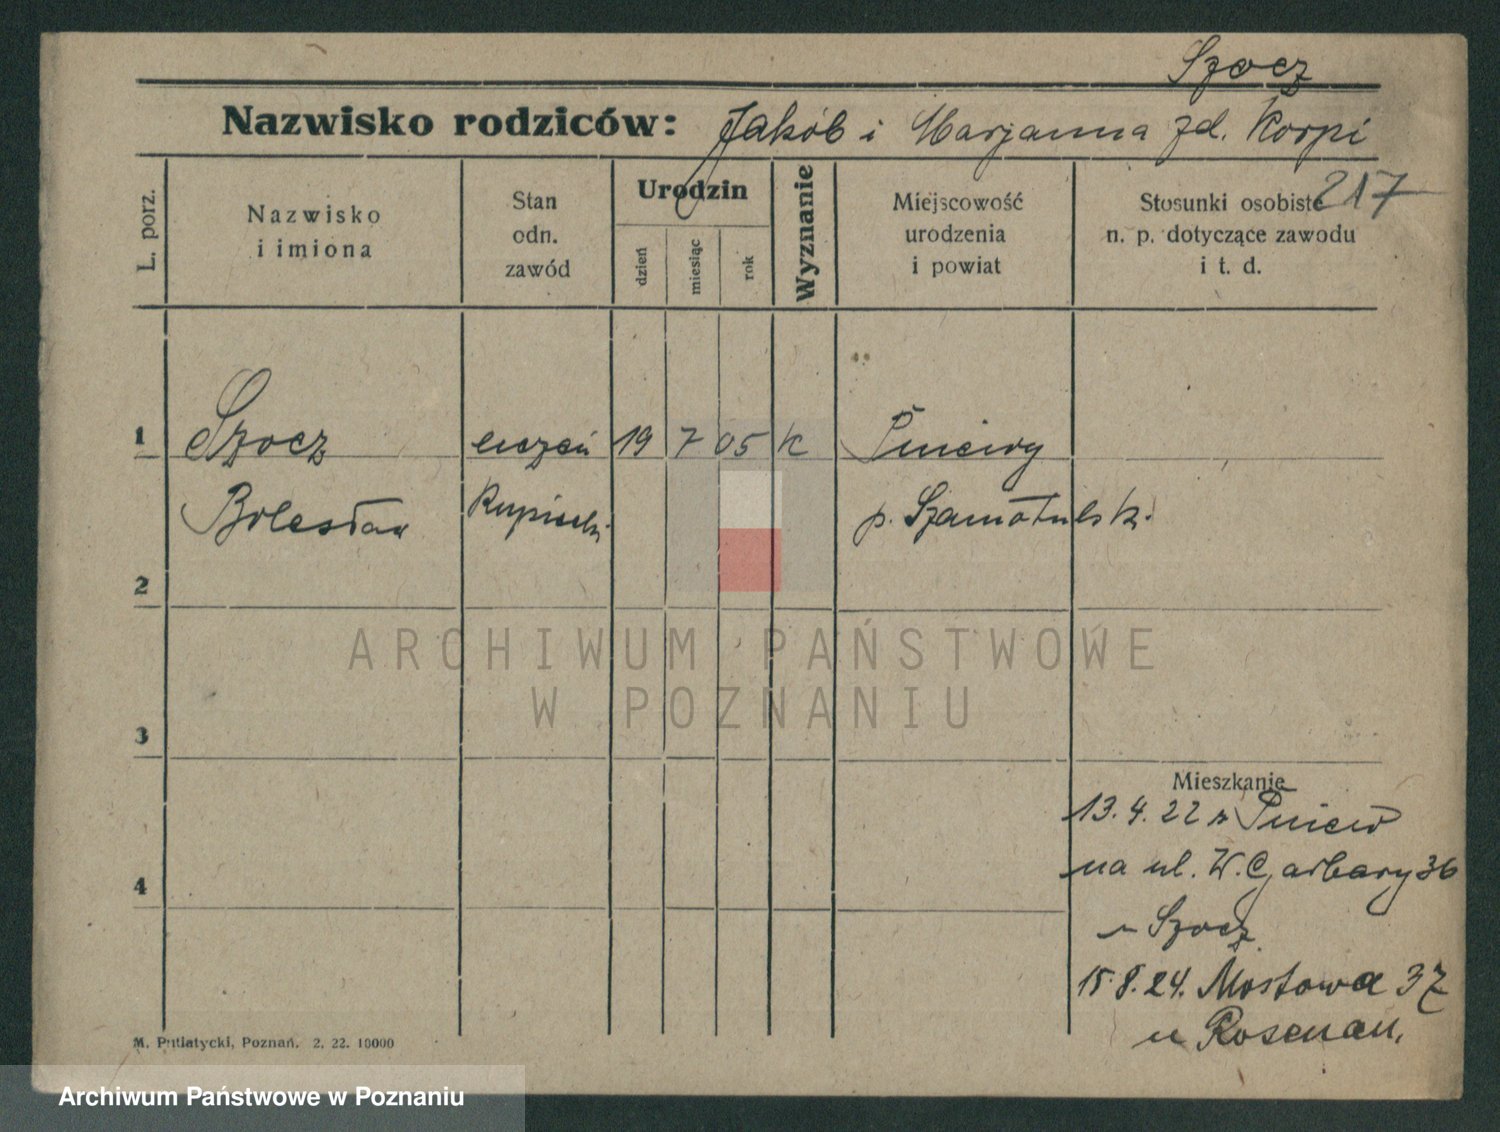 Szocz
Nazwisko rodziców: Jakób i Marjanna zd. Korpi
217
L. porz.
Nazwisko
i imiona
Stan
odn.
zawód
Urodzin
dzień
miesiąc
rok
Wyznanie
Miejscowość
urodzenia
i powiat
Stosunki osobiste
n. p. dotyczące zawodu
i t. d.
1 Szocz uczeń 19 7 05 k Pniewy
Bolesław kupiecki p. Szamotulsk.
2
3
4
ARCHIWUM PAŃSTWOWE
W POZNANIU
Mieszkanie
13.4.22 z Pniew
na ul. W. Garbary 36
u Szocz
15.8.24. Mostowa 37
u Rosenau.
M. Putiatycki, Poznań. 2. 22. 10000
Archiwum Państwowe w Poznaniu